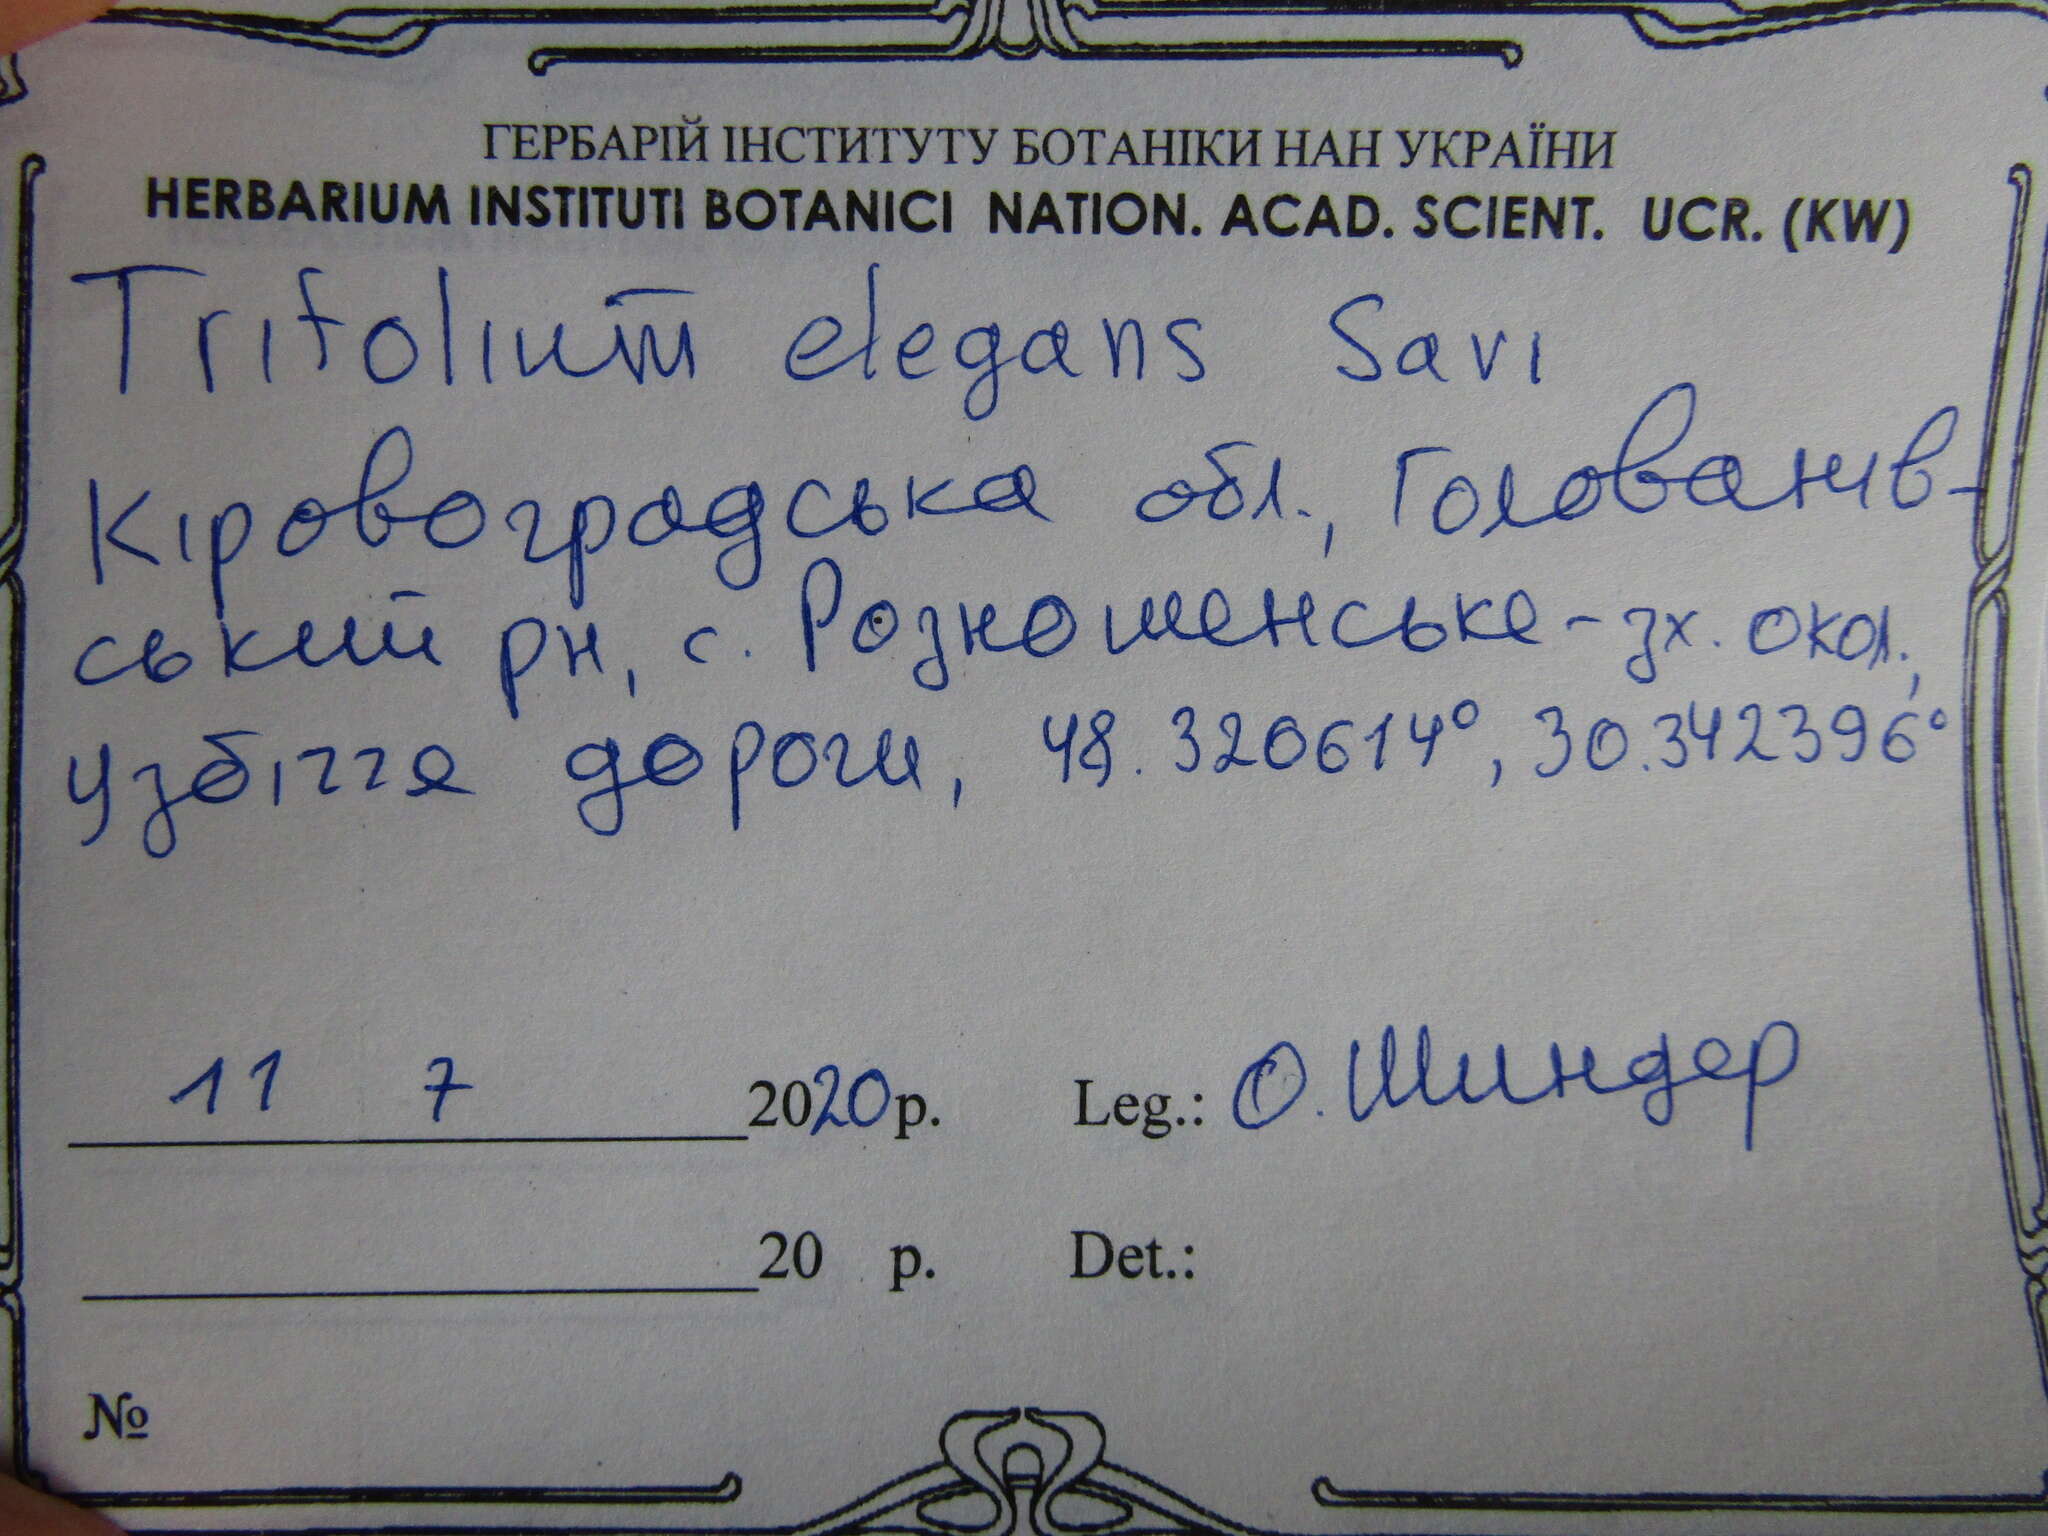 ГЕРБАРІЙ ІНСТИТУТУ БОТАНІКИ НАН УКРАЇНИ
HERBARIUM INSTITUTI BOTANICI NATION. ACAD. SCIENT. UCR. (KW)
Trifolium elegans Savi
Кіровоградська обл., Голованів-
ський рн, с. Розношенське - зх. окол.,
узбіччя дороги, 48.320614°, 30.342396°
11 7 2020 р. Leg.: О. Шиндер
20 р. Det.:
№